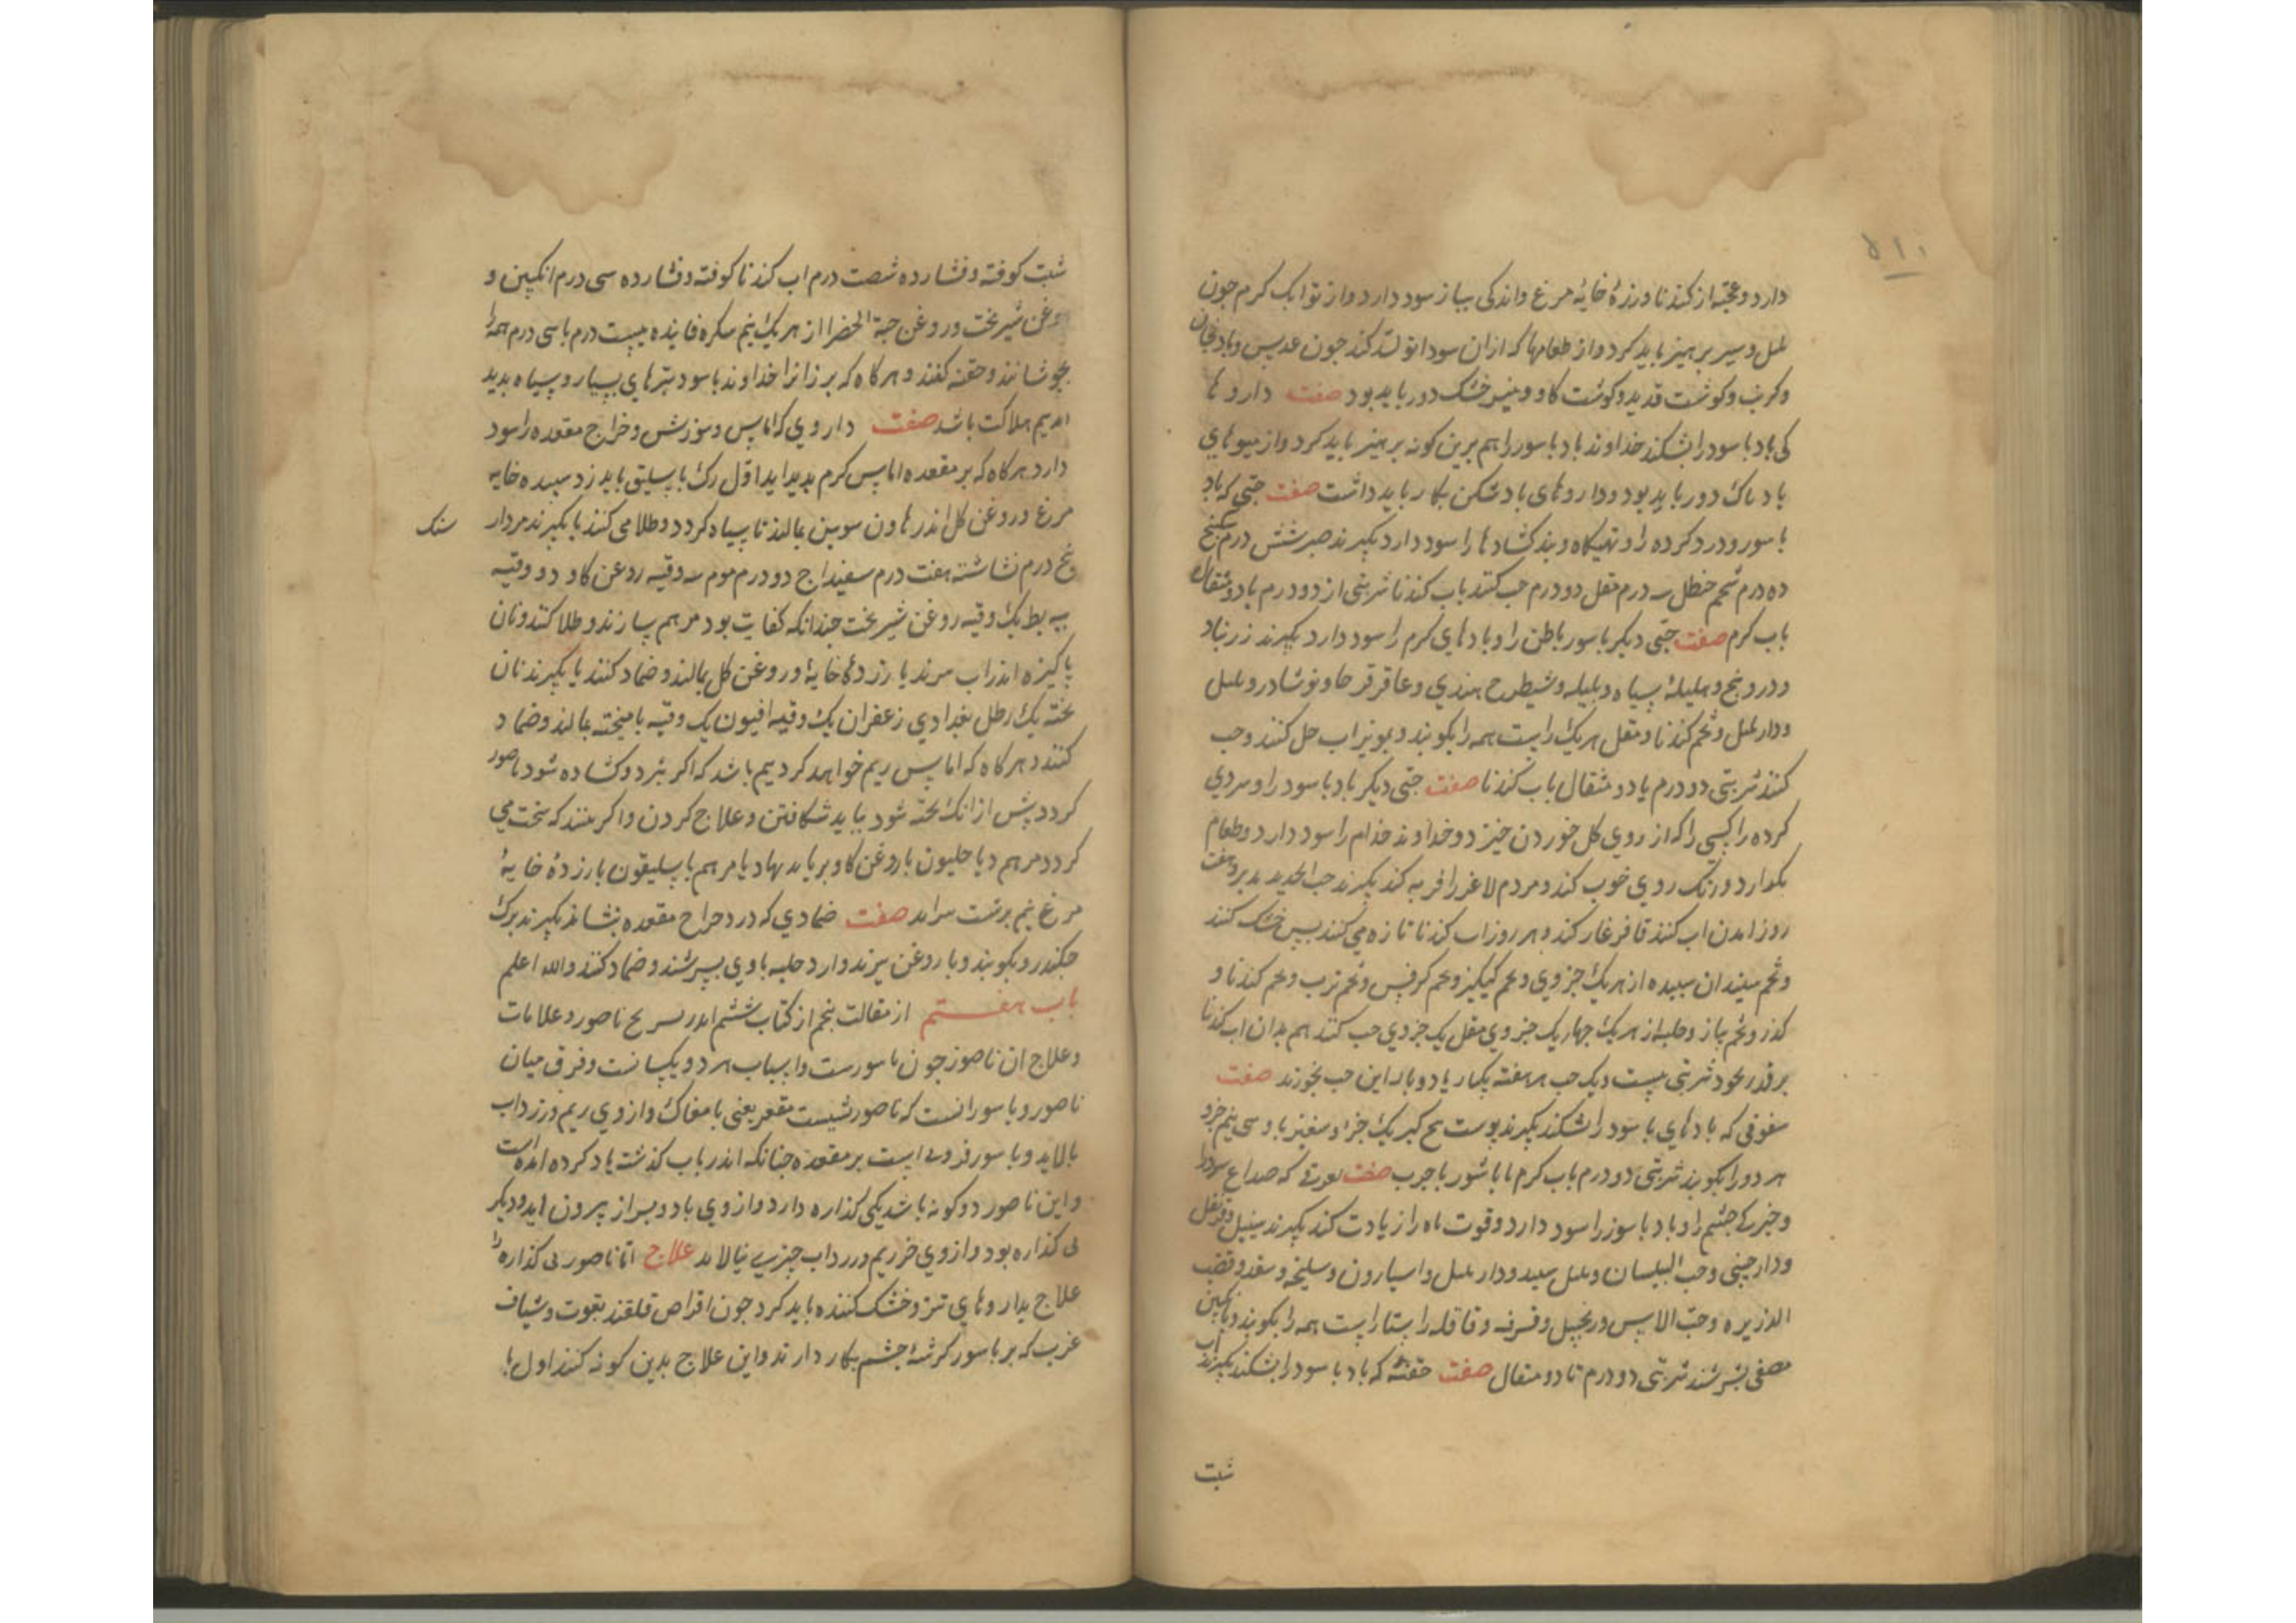 ۵۱۰
دارد و عجّه از کندنا و زردهٔ خایهٔ مرغ و اندکی پیاز سود دارد و از توابل کرم جون
بلبل و سیر پرهیز باید کرد و از طعامها که ازان سودا تولّد کند جون عدس و بادنجان
و کرنب و کوشت قدید و کوشت کاو و پنیر خشک دور باید بود صفت داروها
کی باد باسور را بشکند خداوند باد باسور را هم برین کونه پرهیز باید کرد و از میوهای
بادناک دور باید بود و داروهای بادشکن بکار باید داشت صفت حبّی که باد
باسور و درد کرده را و تهیکاه و بند کشادها را سود دارد بکیرند صبر شش درم سکبینج
ده درم شحم حنظل سه درم مقل دو درم حب کنند باب کندنا شربتی از دو درم تا دو مثقال
باب کرم صفت حبّی دیکر باسور باطن را و بادهای کرم را سود دارد بکیرند زرنباد
و درونج و هلیلهٔ سیاه و بلیله و شیطرج هندی و عاقرقرحا و نوشادر و بلبل
و دار بلبل و تخم کندنا و مقل هریک راست همه را بکوبند و بمویزاب حل کنند و حب
کنند شربتی دو درم یا دو مثقال باب کندنا صفت حبّی دیکر باد باسور را و سردی
کرده را کسی را که از روی کل خوردن خیزد و خداوند جذام را سود دارد و طعام
بکوارد و رنک روی خوب کند و مردم لاغر را فربه کند بکیرند خبث الحدید مدبر و هفت
روز اندر اب کندنا فرغار کند و هر روز اب کندنا تازه می کنند پس خشک کنند
و تخم سپندان سپیده از هریک جزوی و تخم کیکیز و تخم کرفس و تخم ترب و تخم کندنا و
کذر و تخم پیاز و حلبه از هریک جهاریک جزوی مقل یک جزوی حب کنند هم بدان اب کندنا
بر قدر نخود شربتی بیست و یک حب هر هفته یکبار یا دو بار این حب بخورند صفت
سفوفی که بادهای باسور را بشکند بکیرند پوست بیخ کبر یک جزو و سغتر باد سی نیم جزو
هر دو را بکوبند شربتی دو درم باب کرم یا با شوربا جرب صفت معجونی که صداع سرد را
و خیرکی جشم را و باد باسور را سود دارد و قوت باه را زیادت کند بکیرند سنبل و قرنفل
و دارجینی و حب البلسان و بلبل سپید و دار بلبل و اسارون و سلیخه و سعد و قصب
الذریره و حبّ الاس و زنجبیل و قرفه و قاقله راستاراست همه را بکوبند و بانکبین
مصفی بسرشند شربتی دو درم تا دو مثقال صفت حقنهٔ که باد باسور را بشکند بکیرند اب
شبت
شبت کوفته و فشارده شصت درم اب کندنا کوفته و فشارده سی درم انکبین و
روغن شیربخت و روغن حبة الخضرا از هریک نیم سکره فانیذ بیست درم با سی درم همه را
بجوشانند و حقنه کنند و هرکاه که بر زانرا خداوند باسور بثرهای بسیار و سیاه بدید
اید بیم هلاکت باشد صفت داروی که اماس و سوزش و خراج مقعده را سود
دارد هرکاه که بر مقعده اماس کرم بدید اید اوّل رک باسلیق باید زد سپیده خایه
مرغ و روغن کل اندر هاون سربین بمالند تا سیاه کردد و طلا می کنند یا بکیرند مردار
سنک
پنج درم نشاسته هفت درم سفیداج دو درم موم سه وقیه روغن کاو دو وقیه
پیه بط یک وقیه روغن شیربخت جندانکه کفایت بود مرهم سازند و طلا کنند و نان
پاکیزه اندر اب مرند یا زردهٔ خایه و روغن کل بمالند و ضماد کنند یا بکیرند نان
پخته یک رطل بغدادی زعفران یک وقیه افیون یک وقیه بامیخته بمالند و ضماد
کنند و هرکاه که اماس ریم خواهد کرد بیم باشد که اکر بپزد و کشاده شود ناصور
کردد پیش از انک پخته شود بباید شکافتن و علاج کردن و اکر بینند که سخت می
کردد مرهم دیاخلیون با روغن کاو بر باید نهاد یا مرهم باسلیقون با زردهٔ خایهٔ
مرغ نیم برشت صفت ضمادی که درد خراج مقعده بنشاند بکیرند برک
جکندر و بکوبند و با روغن بپزند و ارد حلبه با وی بسرشند و ضماد کنند والله اعلم
باب هفتم از مقالت پنجم از کتاب ششم اندر تشریح ناصور و علامات
و علاج ان ناصور جون باسورست و اسباب هر دو یکسانست و فرق میان
ناصور و باسور انست که ناصور شیست مقعر یعنی با مغاک و از وی ریم و زرداب
بالاید و باسور فزونی است بر مقعده جنانکه اندر باب کذشته یاد کرده امده است
و این ناصور دو کونه باشد یکی کذاره دارد و از وی باد و براز بیرون اید و دیکر
بی کذاره بود و از وی جز ریم و زرداب چیزی نپالاید علاج امّا ناصور بی کذاره را
علاج بداروهای تیز و خشک کننده باید کرد جون اقراص قلقند بقوت و شیاف
غرب که بر باسور کوشهٔ جشم بکار دارند و این علاج بدین کونه کنند اول با